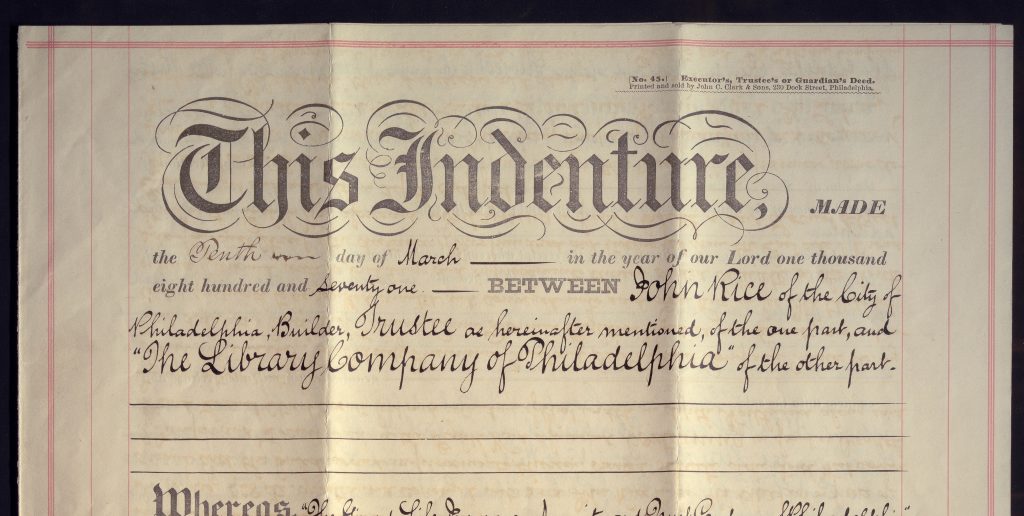 [No. 45.] Executor's, Trustee's or Guardian's Deed.
Printed and sold by John C. Clark & Sons, 230 Dock Street, Philadelphia.
This Indenture, MADE
the Tenth day of March in the year of our Lord one thousand
eight hundred and seventy one BETWEEN John Rice of the City of
Philadelphia, Builder, Trustee as hereinafter mentioned, of the one part, and
"The Library Company of Philadelphia" of the other part.
Whereas "The